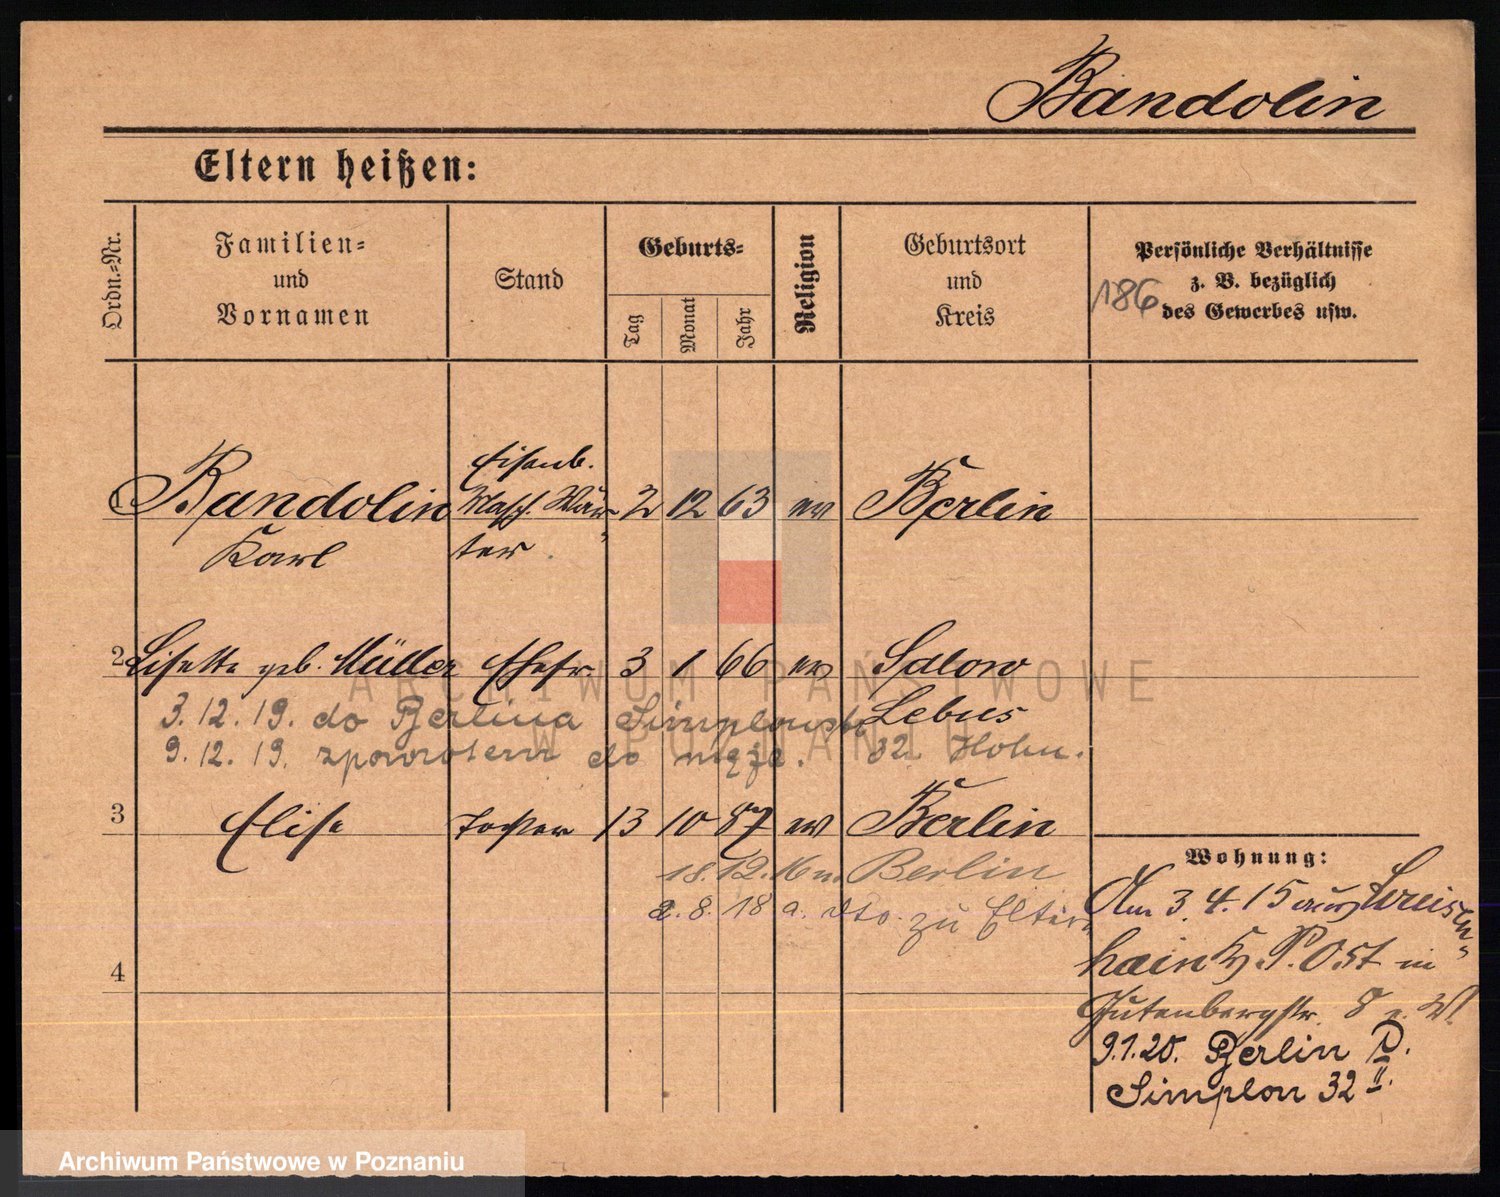 Bandolin
Eltern heißen:
Ordn.-Nr.
Familien-
und
Vornamen
Stand
Geburts-
Tag
Monat
Jahr
Religion
Geburtsort
und
Kreis
Persönliche Verhältnisse
z. B. bezüglich
des Gewerbes usw.
186
1 Bandolin Eisenb. Masch. Wär- 2 12 63 ev Berlin
Karl ter
2 Lisette geb. Müller Ehefr. 3 1 66 ev Salow
Lebus
3.12.19. do Berlina Simplonstr
9.12.19. zpowrotem do męża. 32 Hohn.
3 Elise Tochter 13 10 87 ev Berlin
18.12.16 n. Berlin
2.8.18 a. dto. zu Eltern
4
Wohnung:
Am 3.4.15 aus
hain P. Ost in
Gutenbergstr. 8
9.1.20. Berlin
Simplon 32 II.
ARCHIWUM PAŃSTWOWE
W POZNANIU
Archiwum Państwowe w Poznaniu